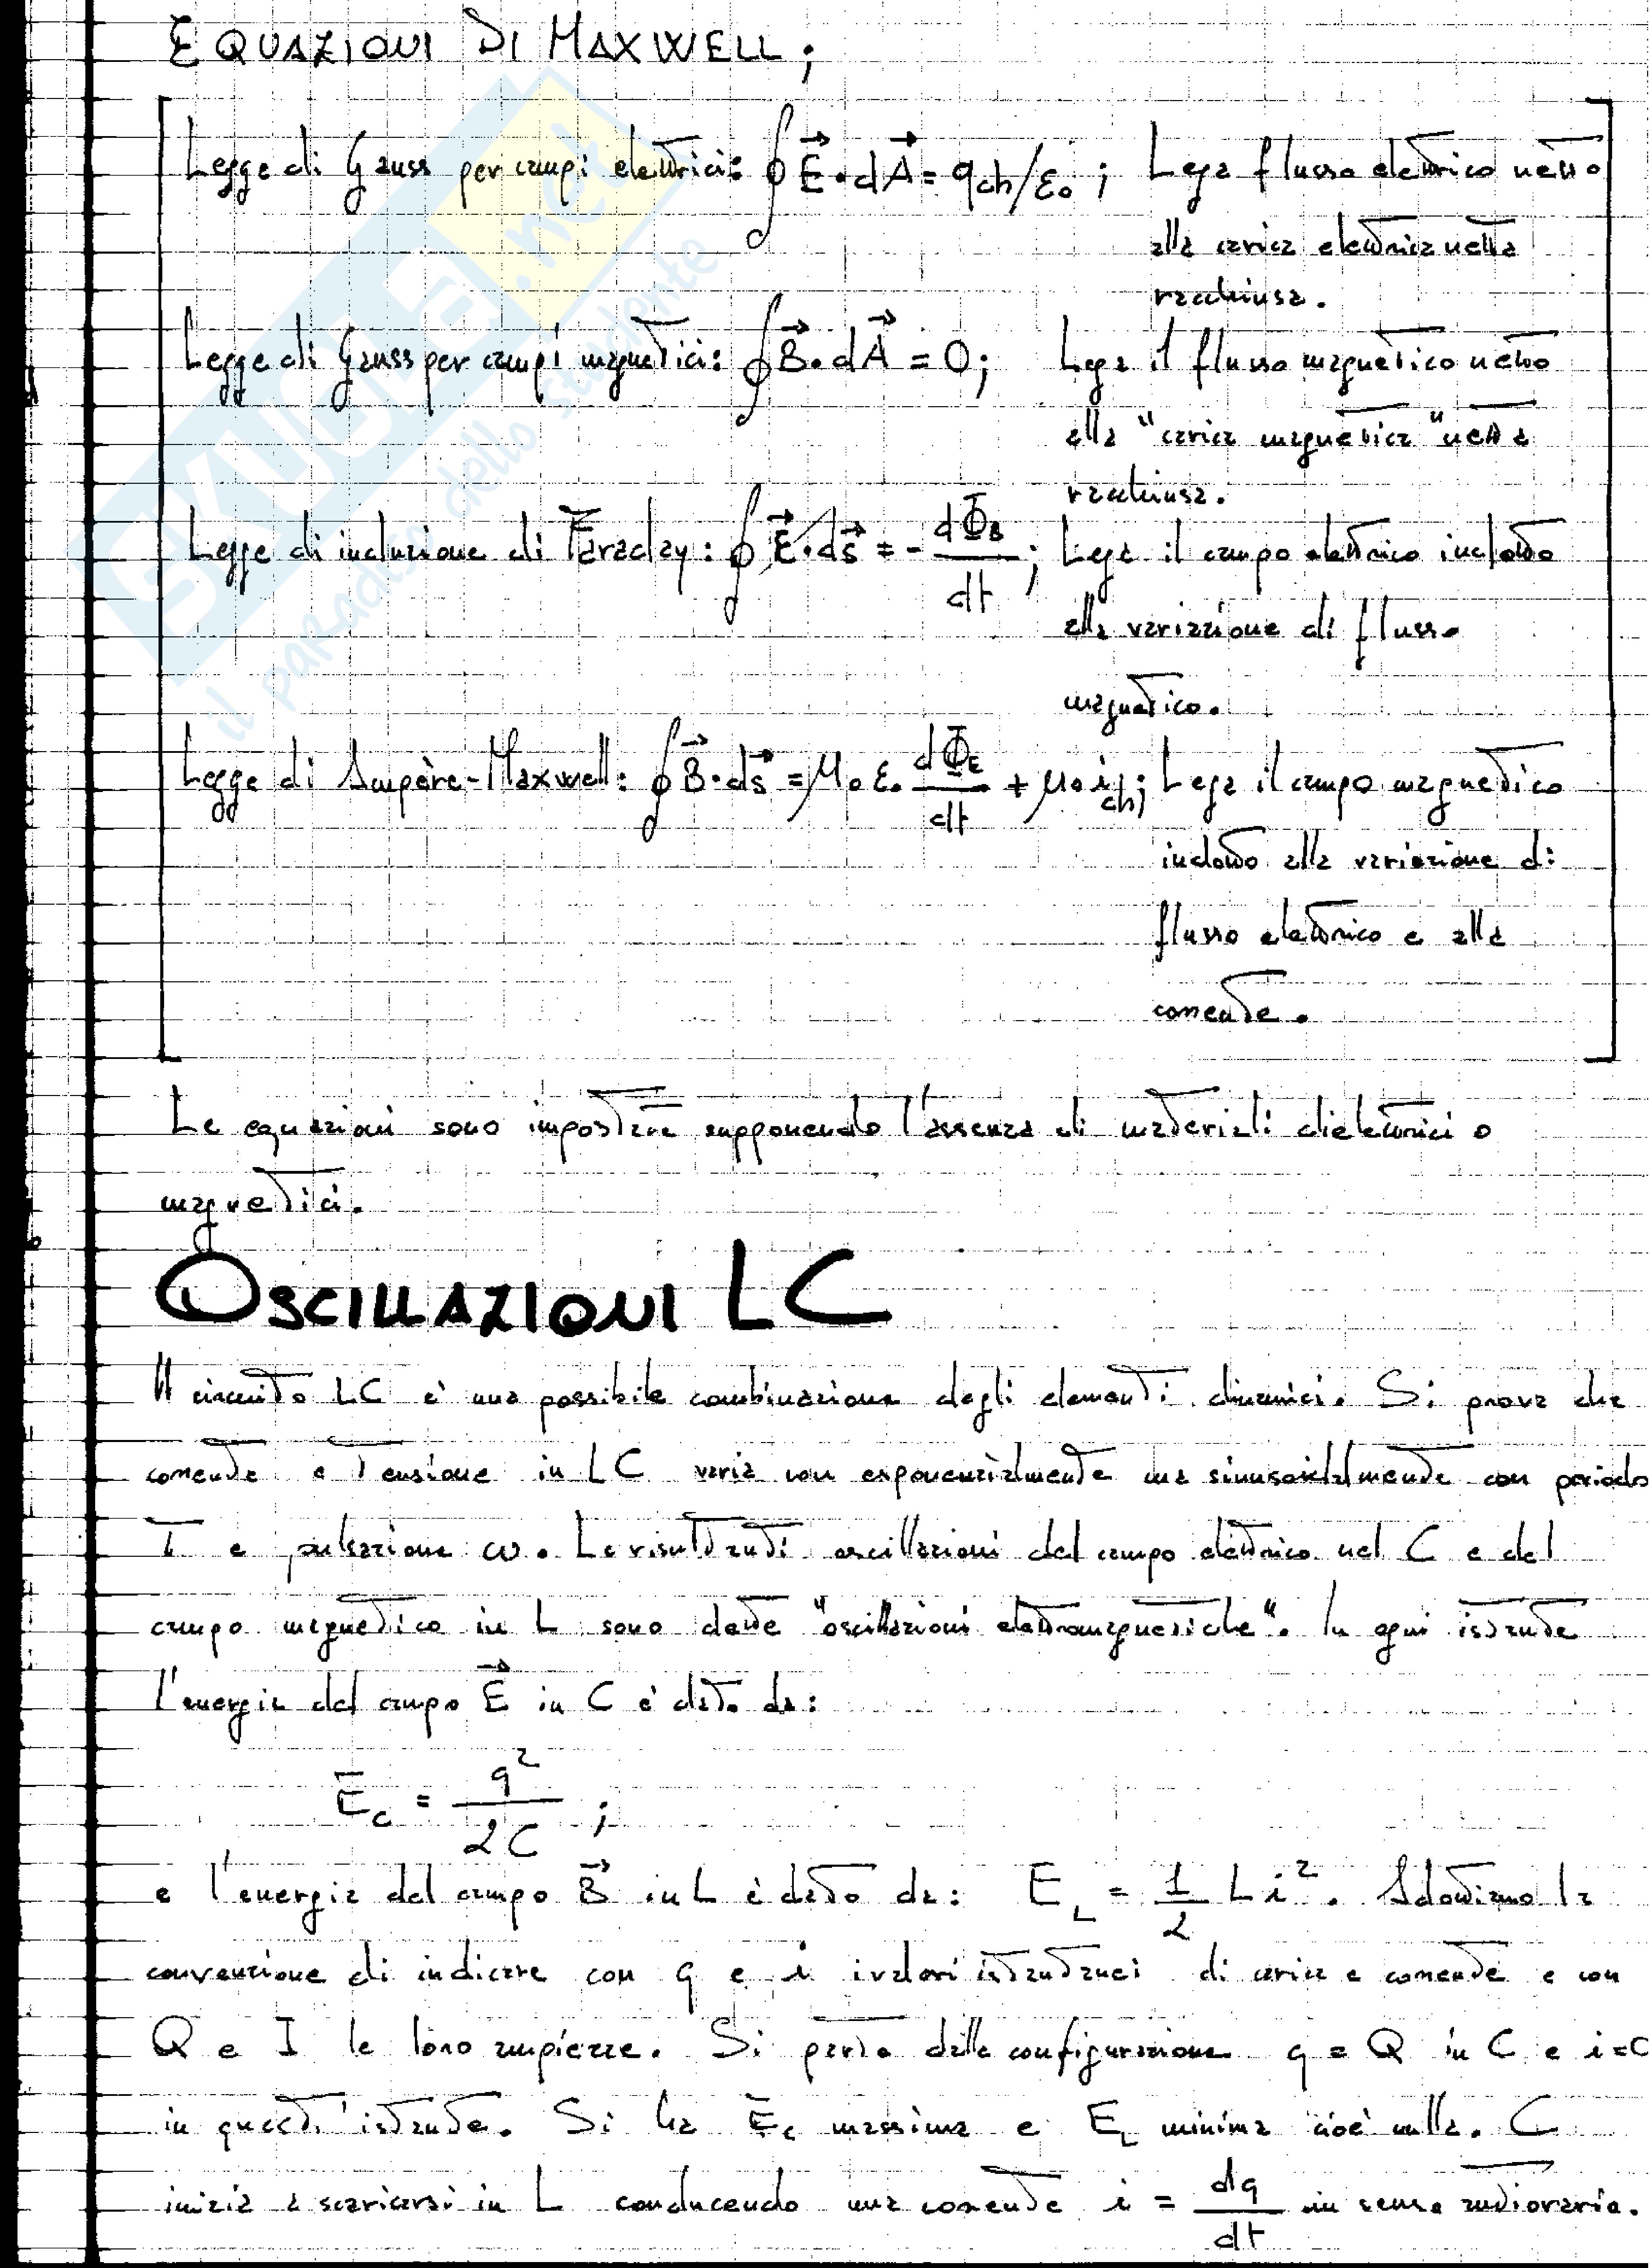 EQUAZIONI DI MAXWELL;
Legge di Gauss per campi elettrici: ∮ E⃗·dA⃗ = q_ch/ε₀ ; Lega flusso elettrico netto
alla carica elettrica netta
racchiusa.
Legge di Gauss per campi magnetici: ∮ B⃗·dA⃗ = 0; Lega il flusso magnetico netto
alla "carica magnetica" netta
racchiusa.
Legge di induzione di Faraday: ∮ E⃗·ds⃗ = - dΦ_B/dt ; Lega il campo elettrico indotto
alla variazione di flusso
magnetico.
Legge di Ampère-Maxwell: ∮ B⃗·ds⃗ = μ₀ε₀ dΦ_E/dt + μ₀i_ch; Lega il campo magnetico
indotto alla variazione di
flusso elettrico e alla
corrente.
Le equazioni sono impostate supponendo l'assenza di materiali dielettrici o
magnetici.
OSCILLAZIONI LC
Il circuito LC è una possibile combinazione degli elementi dinamici. Si prova che
corrente e tensione in LC varia non esponenzialmente ma sinusoidalmente con periodo
T e pulsazione ω. Le risultanti oscillazioni del campo elettrico nel C e del
campo magnetico in L sono dette "oscillazioni elettromagnetiche". In ogni istante
l'energia del campo E⃗ in C è dato da:
E_C = q²/2C ;
e l'energia del campo B⃗ in L è dato da: E_L = 1/2 L i². Adottiamo la
convenzione di indicare con q e i i valori istantanei di carica e corrente e con
Q e I le loro ampiezze. Si parta dalla configurazione q = Q in C e i=0
in quest'istante. Si ha E_C massima e E_L minima cioè nulla. C
inizia a scaricarsi in L conducendo una corrente i = dq/dt in senso antiorario.
SKUOLA.net
il paradiso dello studente